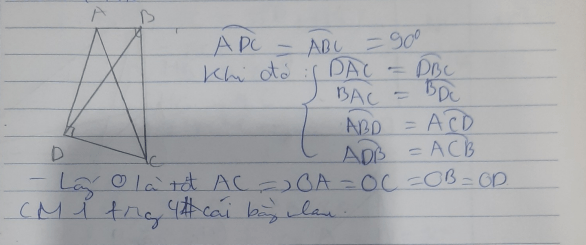 A B
D C
ADC = ABC = 90°
Khi đó: DAC = DBC
BAC = BDC
ABD = ACD
ADB = ACB
- Lấy O là tđ AC => OA = OC = OB = OD
CM 1 trong 4 cái bằng nhau.